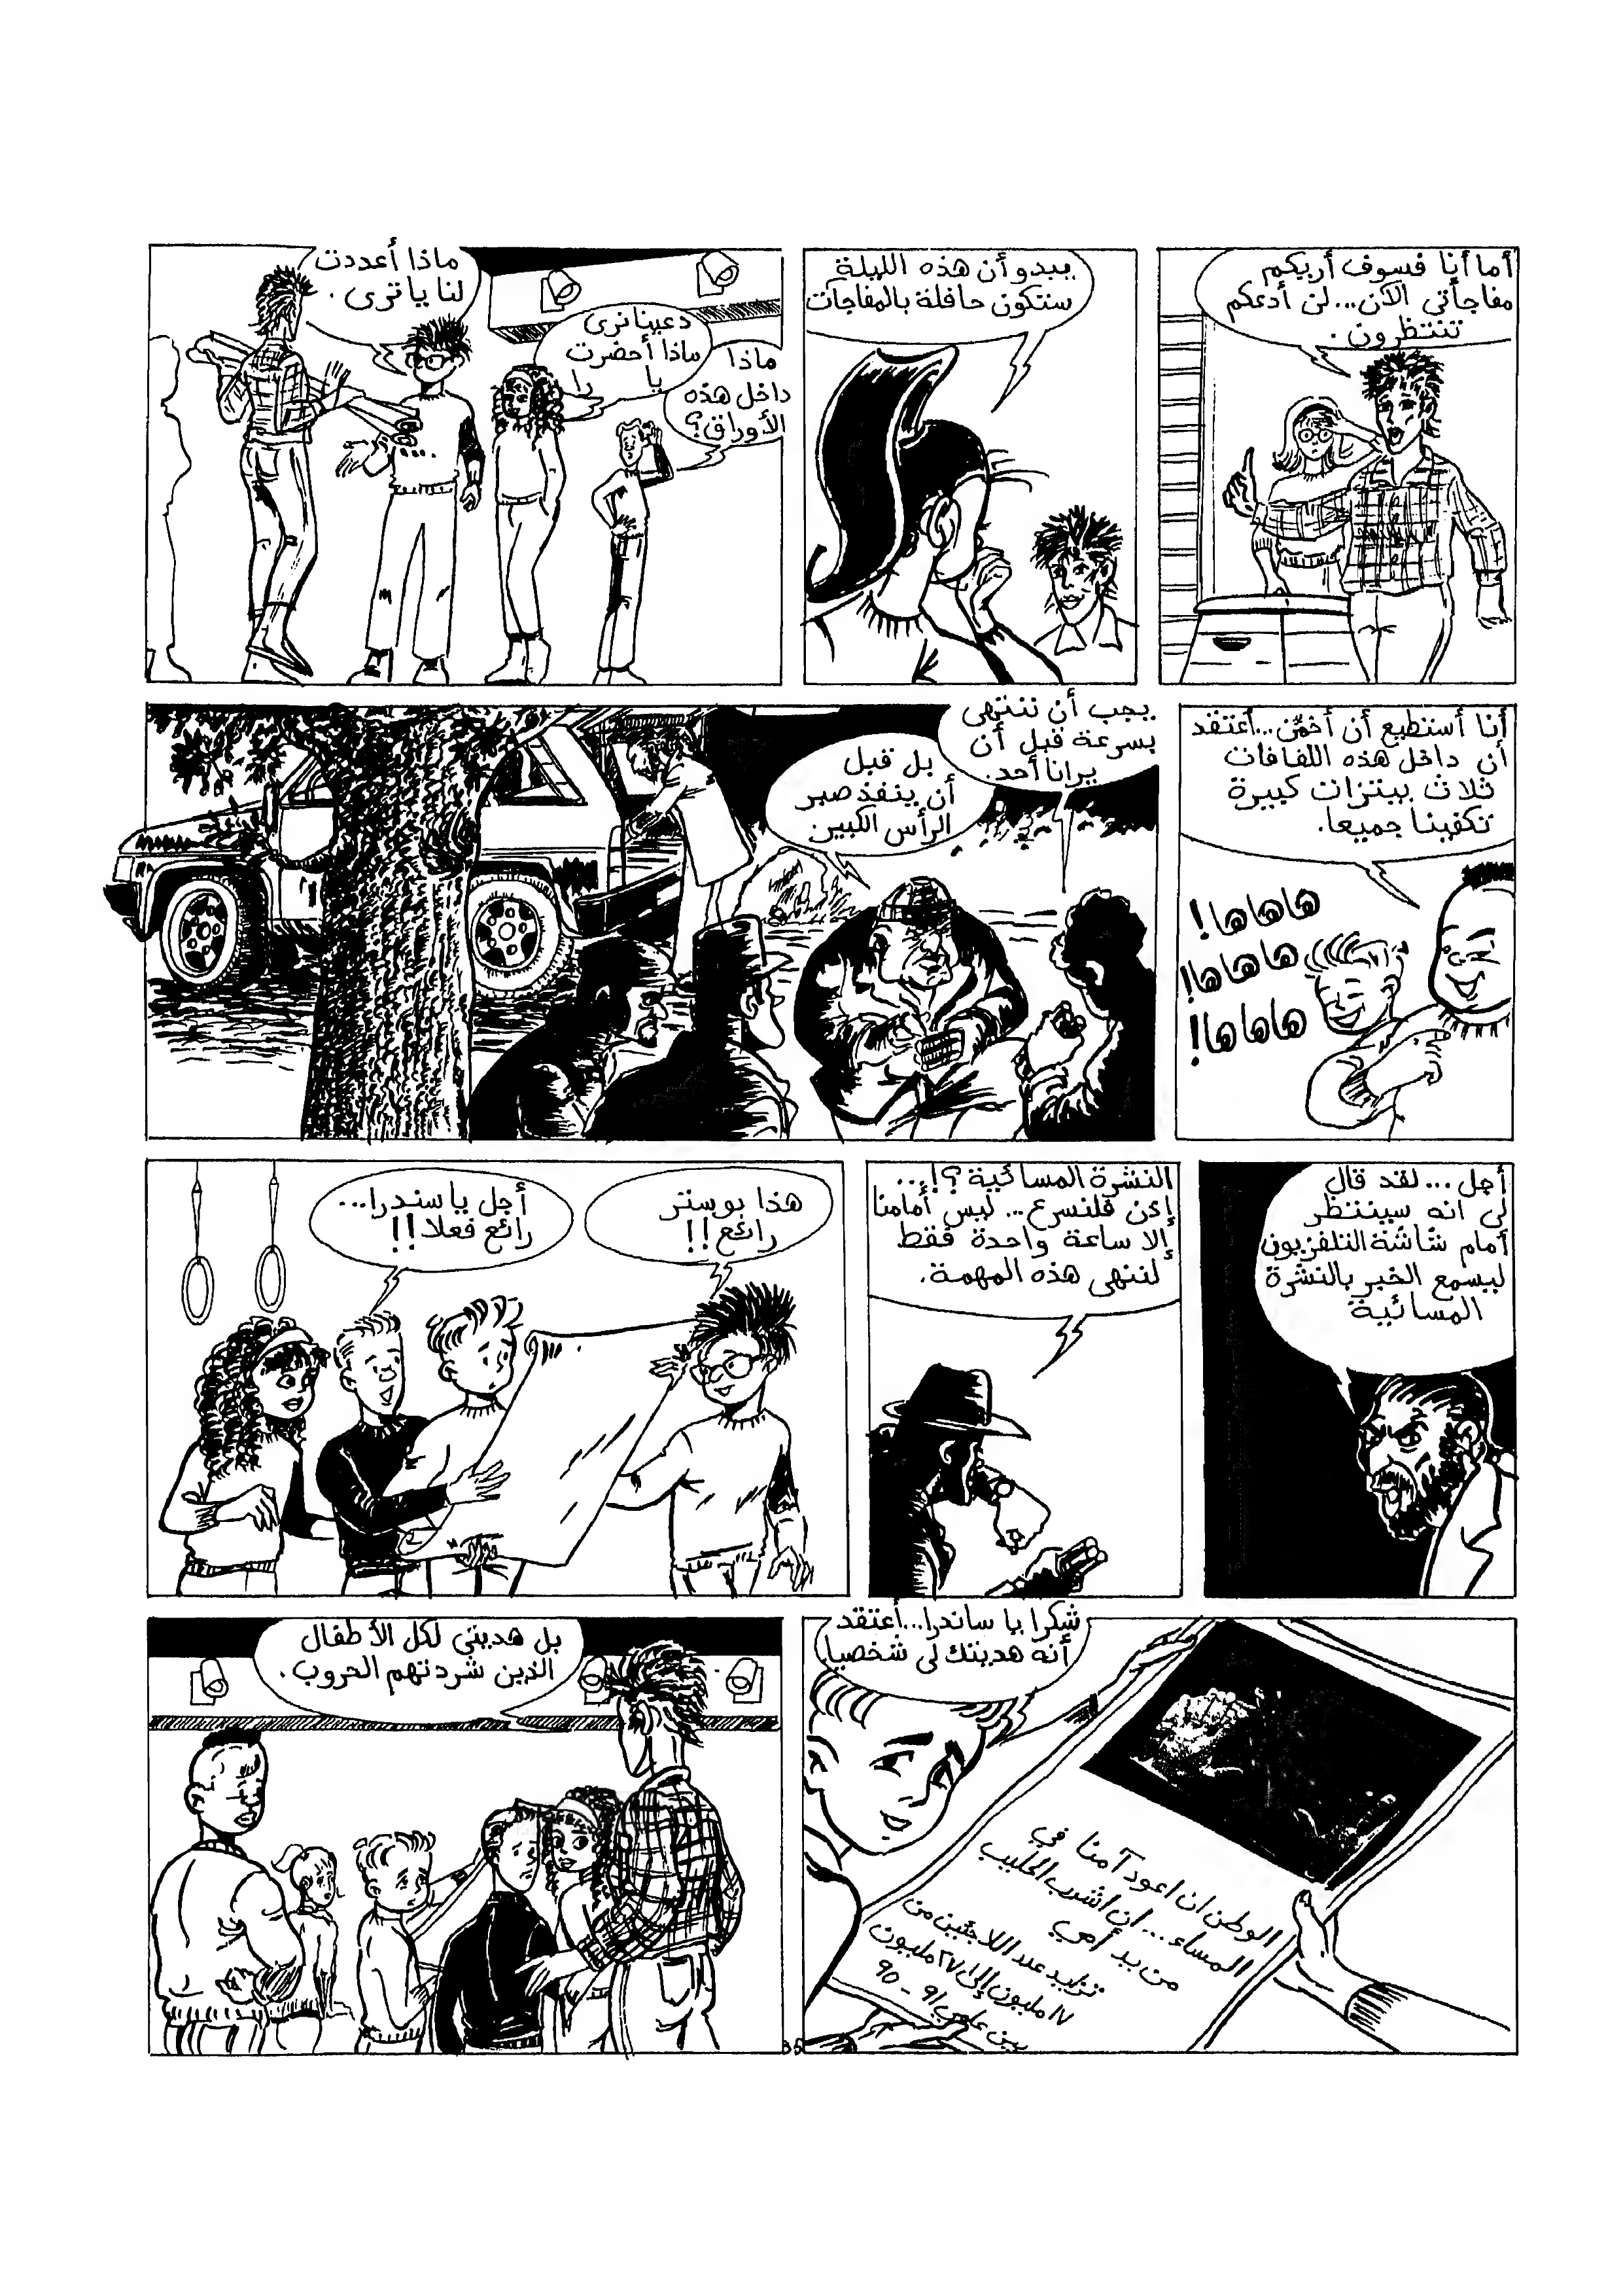 أما أنا فسوف أريكم
مفاجأتي الآن... لن أدعكم
تنتظرون.
يبدو أن هذه الليلة
ستكون حافلة بالمفاجآت
ماذا أعددت
لنا يا ترى.
دعينا نرى
ماذا أحضرت
يا
را
ماذا
داخل هذه
الأوراق؟
أنا أستطيع أن أخمّن... أعتقد
أن داخل هذه اللفافات
ثلاث بيتزات كبيرة
تكفينا جميعا.
هاهاها!
هاهاها!
هاهاها!
يجب أن ننتهى
بسرعة قبل أن
يرانا أحد.
بل قبل
أن ينفذ صبر
الرأس الكبير.
أجل... لقد قال
لى انه سينتظر
أمام شاشة التلفزيون
ليسمع الخبر بالنشرة
المسائية
النشرة المسائية؟!...
إذن فلنسرع... ليس أمامنا
إلا ساعة واحدة فقط
لننهى هذه المهمة.
هذا بوستر
رائع!!
أجل يا سندرا...
رائع فعلا!!
شكرا يا ساندرا... أعتقد
أنه هديتك لى شخصيا
الوطن ان اعود آمنا في
المساء... ان اشرب الحليب
من يد أمي
تزايد عدد اللاجئين من
١٧ مليون إلى ٢٧ مليون
بين عامي ٩١ - ٩٥
بل هديتي لكل الأطفال
الذين شردتهم الحروب.
35